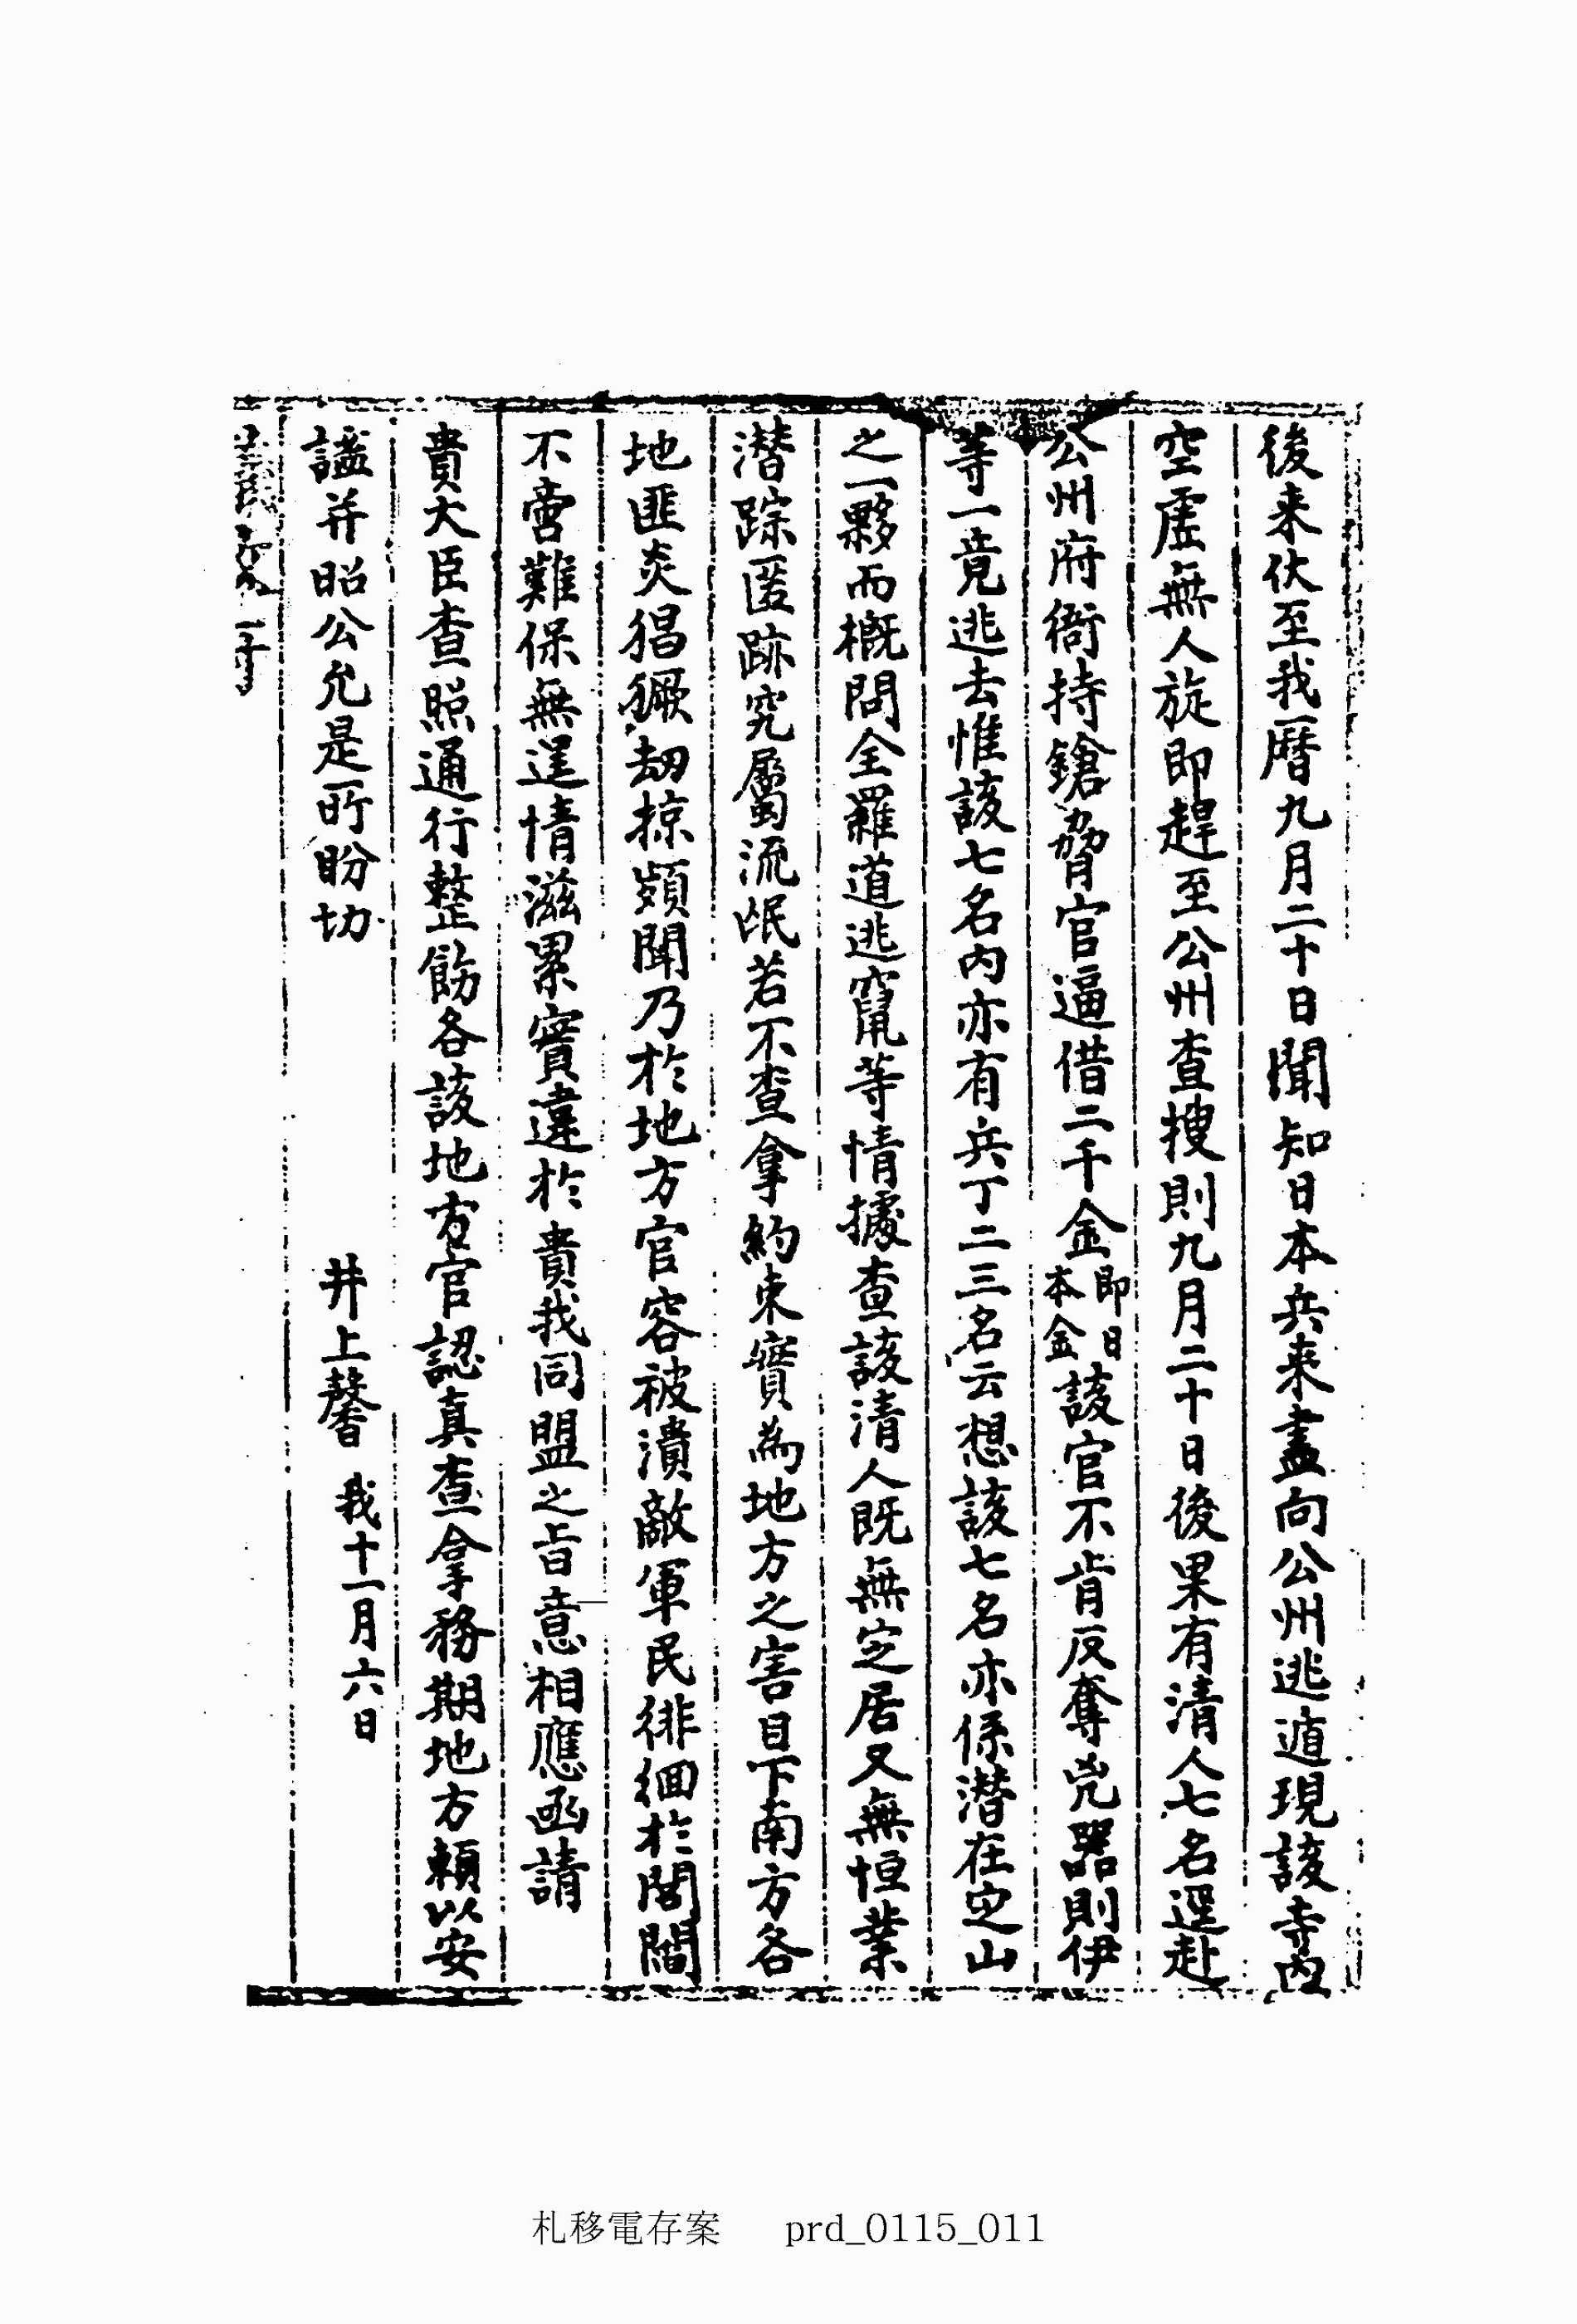 後来伏至我曆九月二十日聞知日本兵来盡向公州逃遁現該寺內
空虛無人旋即趕至公州查搜則九月二十日後果有清人七名逕赴
公州府衙持鎗脅官逼借二千金即日本金該官不肯反奪兇器則伊
等一竟逃去惟該七名內亦有兵丁二三名云想該七名亦係潜在定山
之一夥而概問全羅道逃竄等情據查該清人既無定居又無恒業
潜踪匿跡究屬流氓若不查拿約束實為地方之害目下南方各
地匪炎猖獗劫掠頻聞乃於地方官容被潰敵軍民徘徊於閭閻
不啻難保無逞情滋累實違於貴我同盟之旨意相應函請
貴大臣查照通行整飭各該地方官認真查拿務期地方賴以安
謐并昭公允是所盼切
井上馨 我十一月六日
札移電存案 prd_0115_011